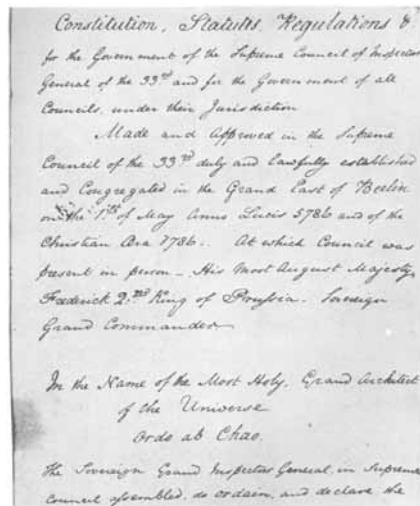 Constitution, Statutes, Regulations &.
for the Government of the Supreme Council of Inspectors
General of the 33rd and for the Government of all
Councils, under their Jurisdiction
Made and Approved in the Supreme
Council of the 33rd duly and lawfully established
and Congregated in the Grand East of Berlin
on the 1st of May Anno Lucis 5786 and of the
Christian Æra 1786. At which Council was
present in person – His Most August Majesty,
Frederick 2nd King of Prussia. Sovereign
Grand Commander
In the Name of the Most Holy, Grand Architect
of the Universe
Ordo ab Chao.
The Sovereign Grand Inspectors General, in Supreme
Council assembled, do ordain, and declare the